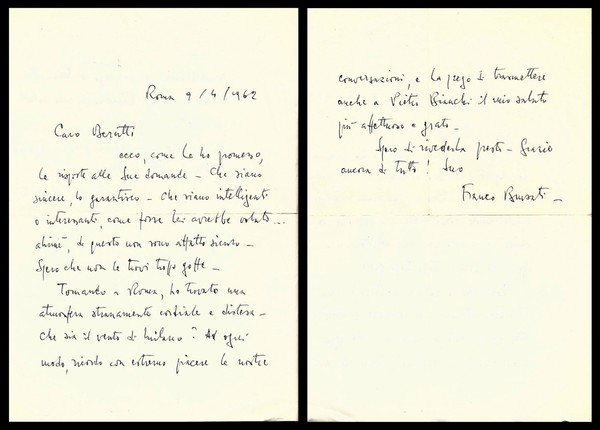 Roma 9/4/1962
Caro Berutti
ecco, come Le ho promesso,
le risposte alle Sue domande – Che siano
sincere, lo garantisco – Che siano intelligenti
o interessanti, come forse Lei avrebbe voluto...
ahimè, di questo non sono affatto sicuro –
Spero che non le trovi troppo goffe –
Tornando a Roma, ho trovato una
atmosfera stranamente cordiale e distesa –
che sia il vento di Milano? Ad ogni
modo, ricordo con estremo piacere le nostre
conversazioni, e La prego di trasmettere
anche a Pietro Bianchi il mio saluto
più affettuoso e grato –
Spero di rivederLa presto – Grazie
ancora di tutto! Suo
Franco Brusati –